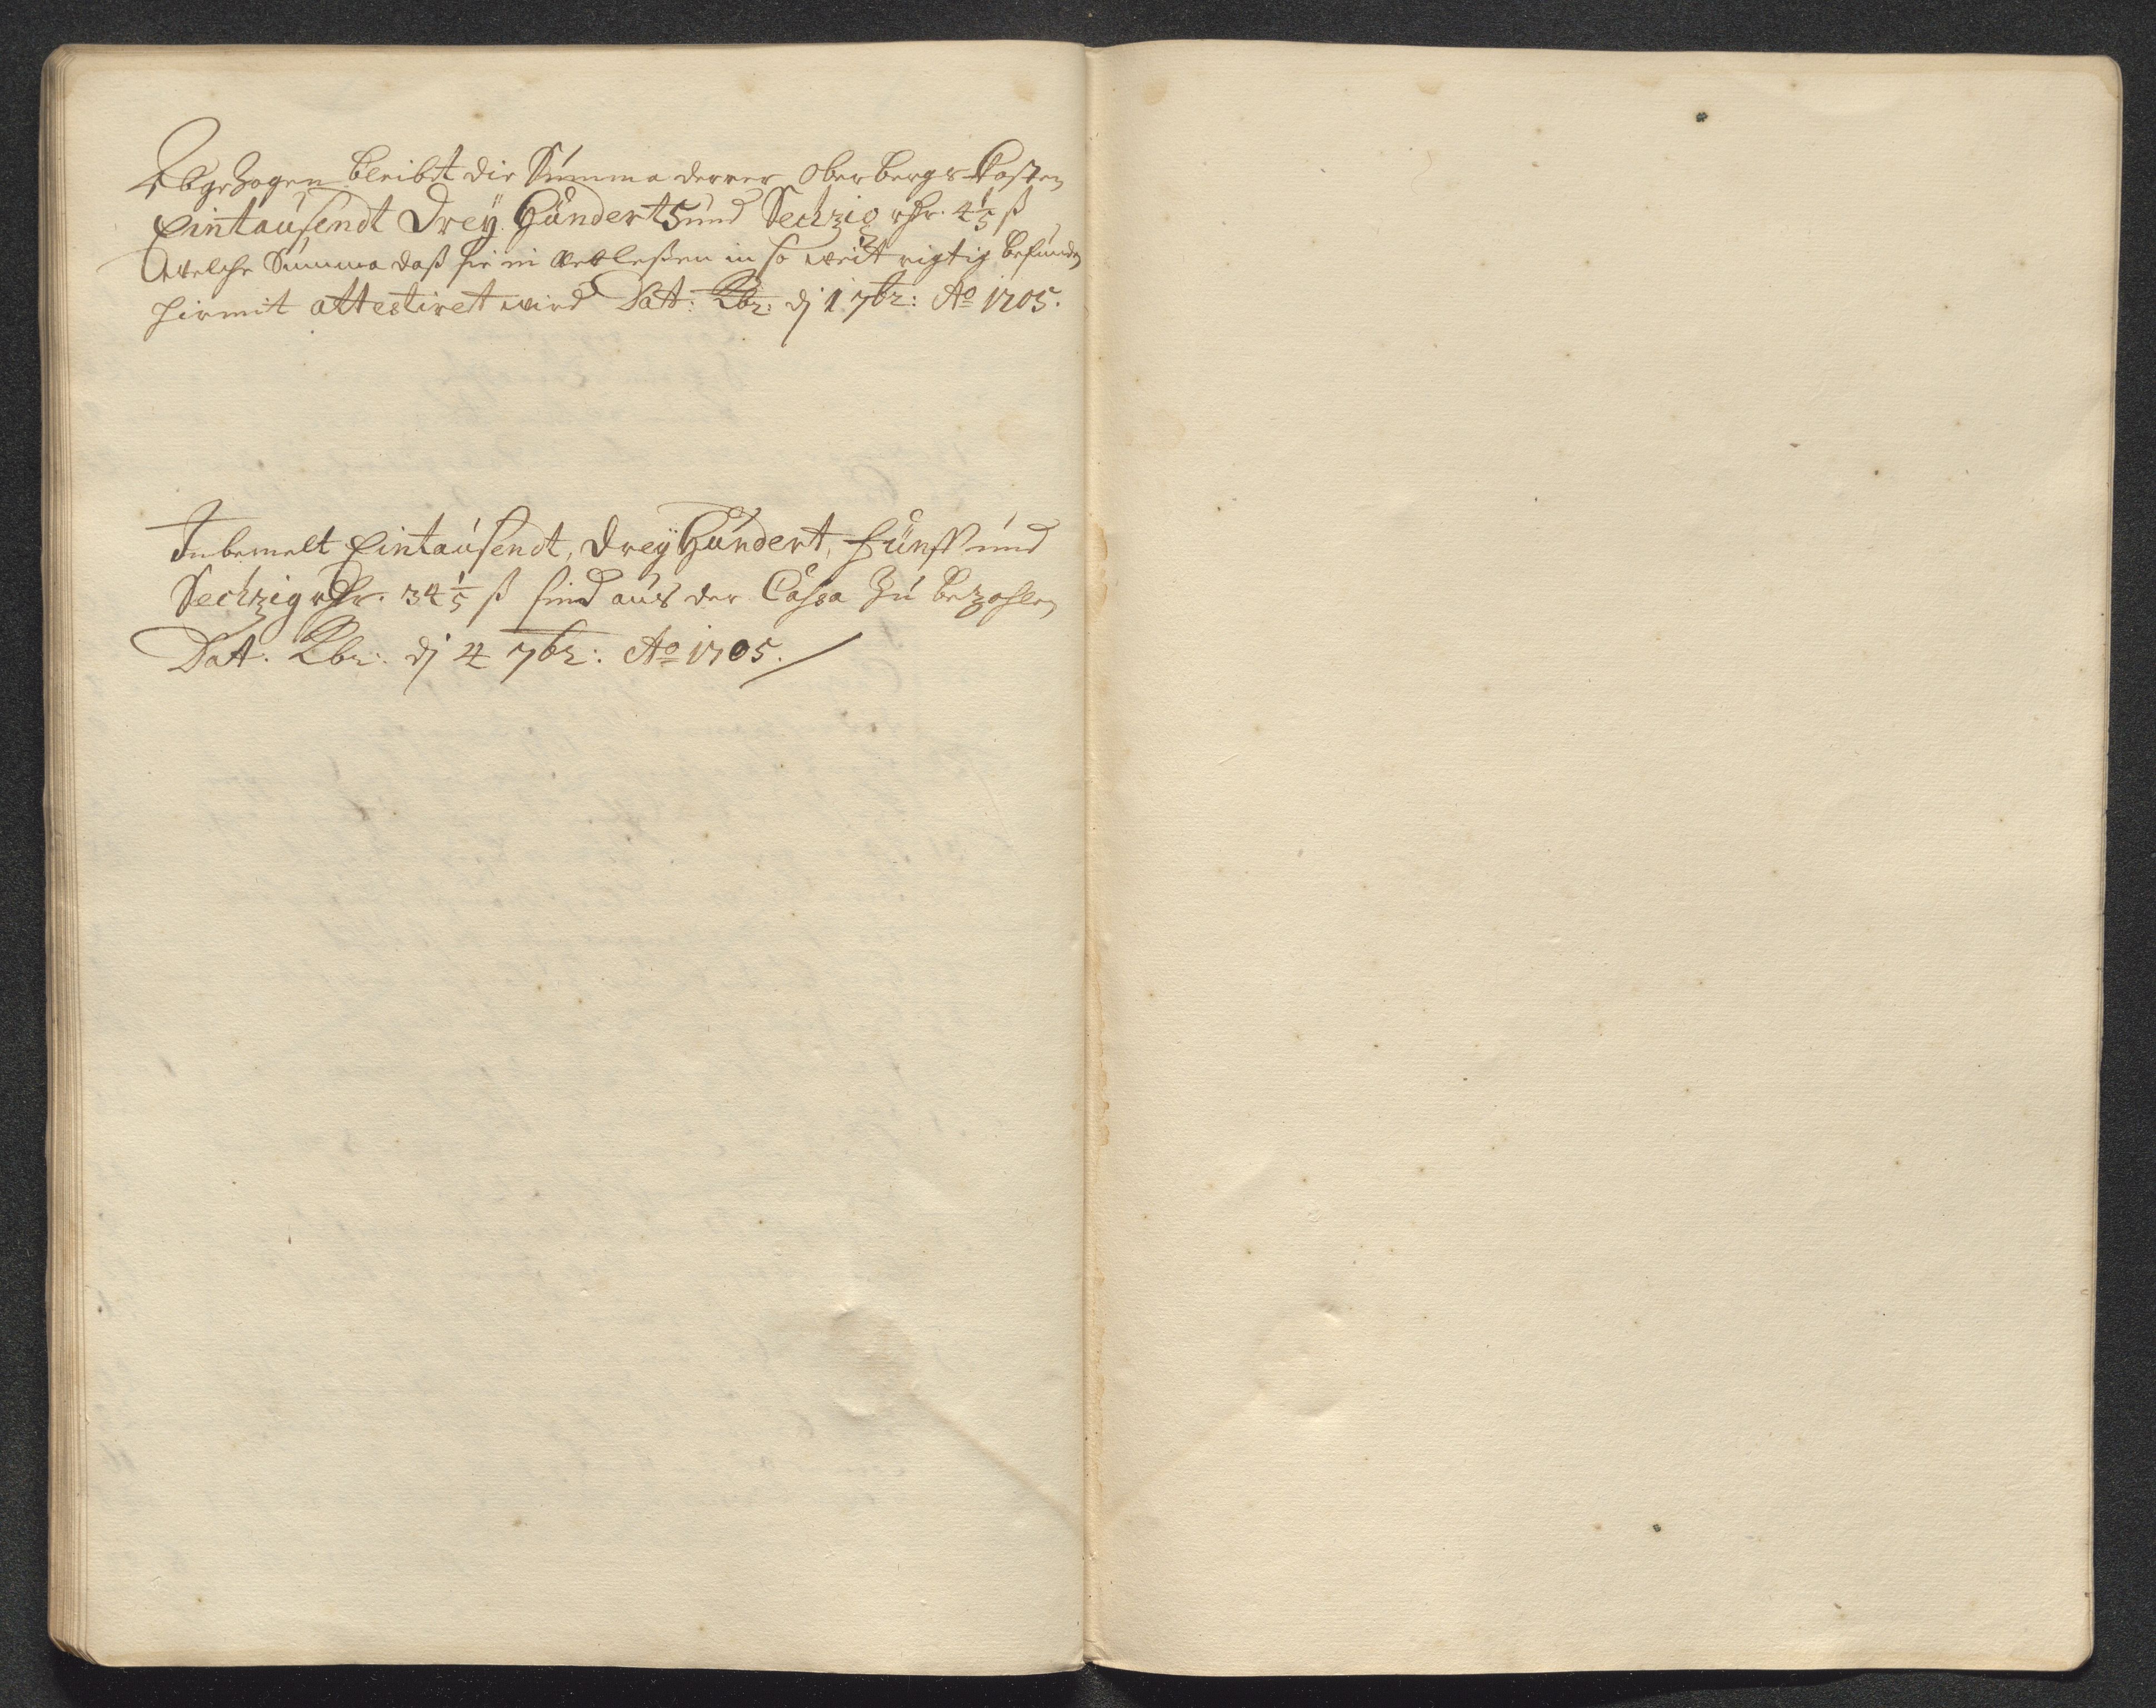 Abgezogen bleibt die Summa derer Oberbergs Kosten
Eintausendt Drey Hundert 5 und Sechzig rthr. 4 1/5 ß
welche Summa daß sie in so weit rigtig befunden
hirmit attestiret wird Dat: Kbr: dj 1 7br: Ao 1705.
Inbemelt Eintausendt, Drey Hundert, Fünff und
Sechzig rthr. 34 1/5 ß sind aus der Cassa zu bezahlen
Dat. Kbr: dj 4 7br: Ao 1705.